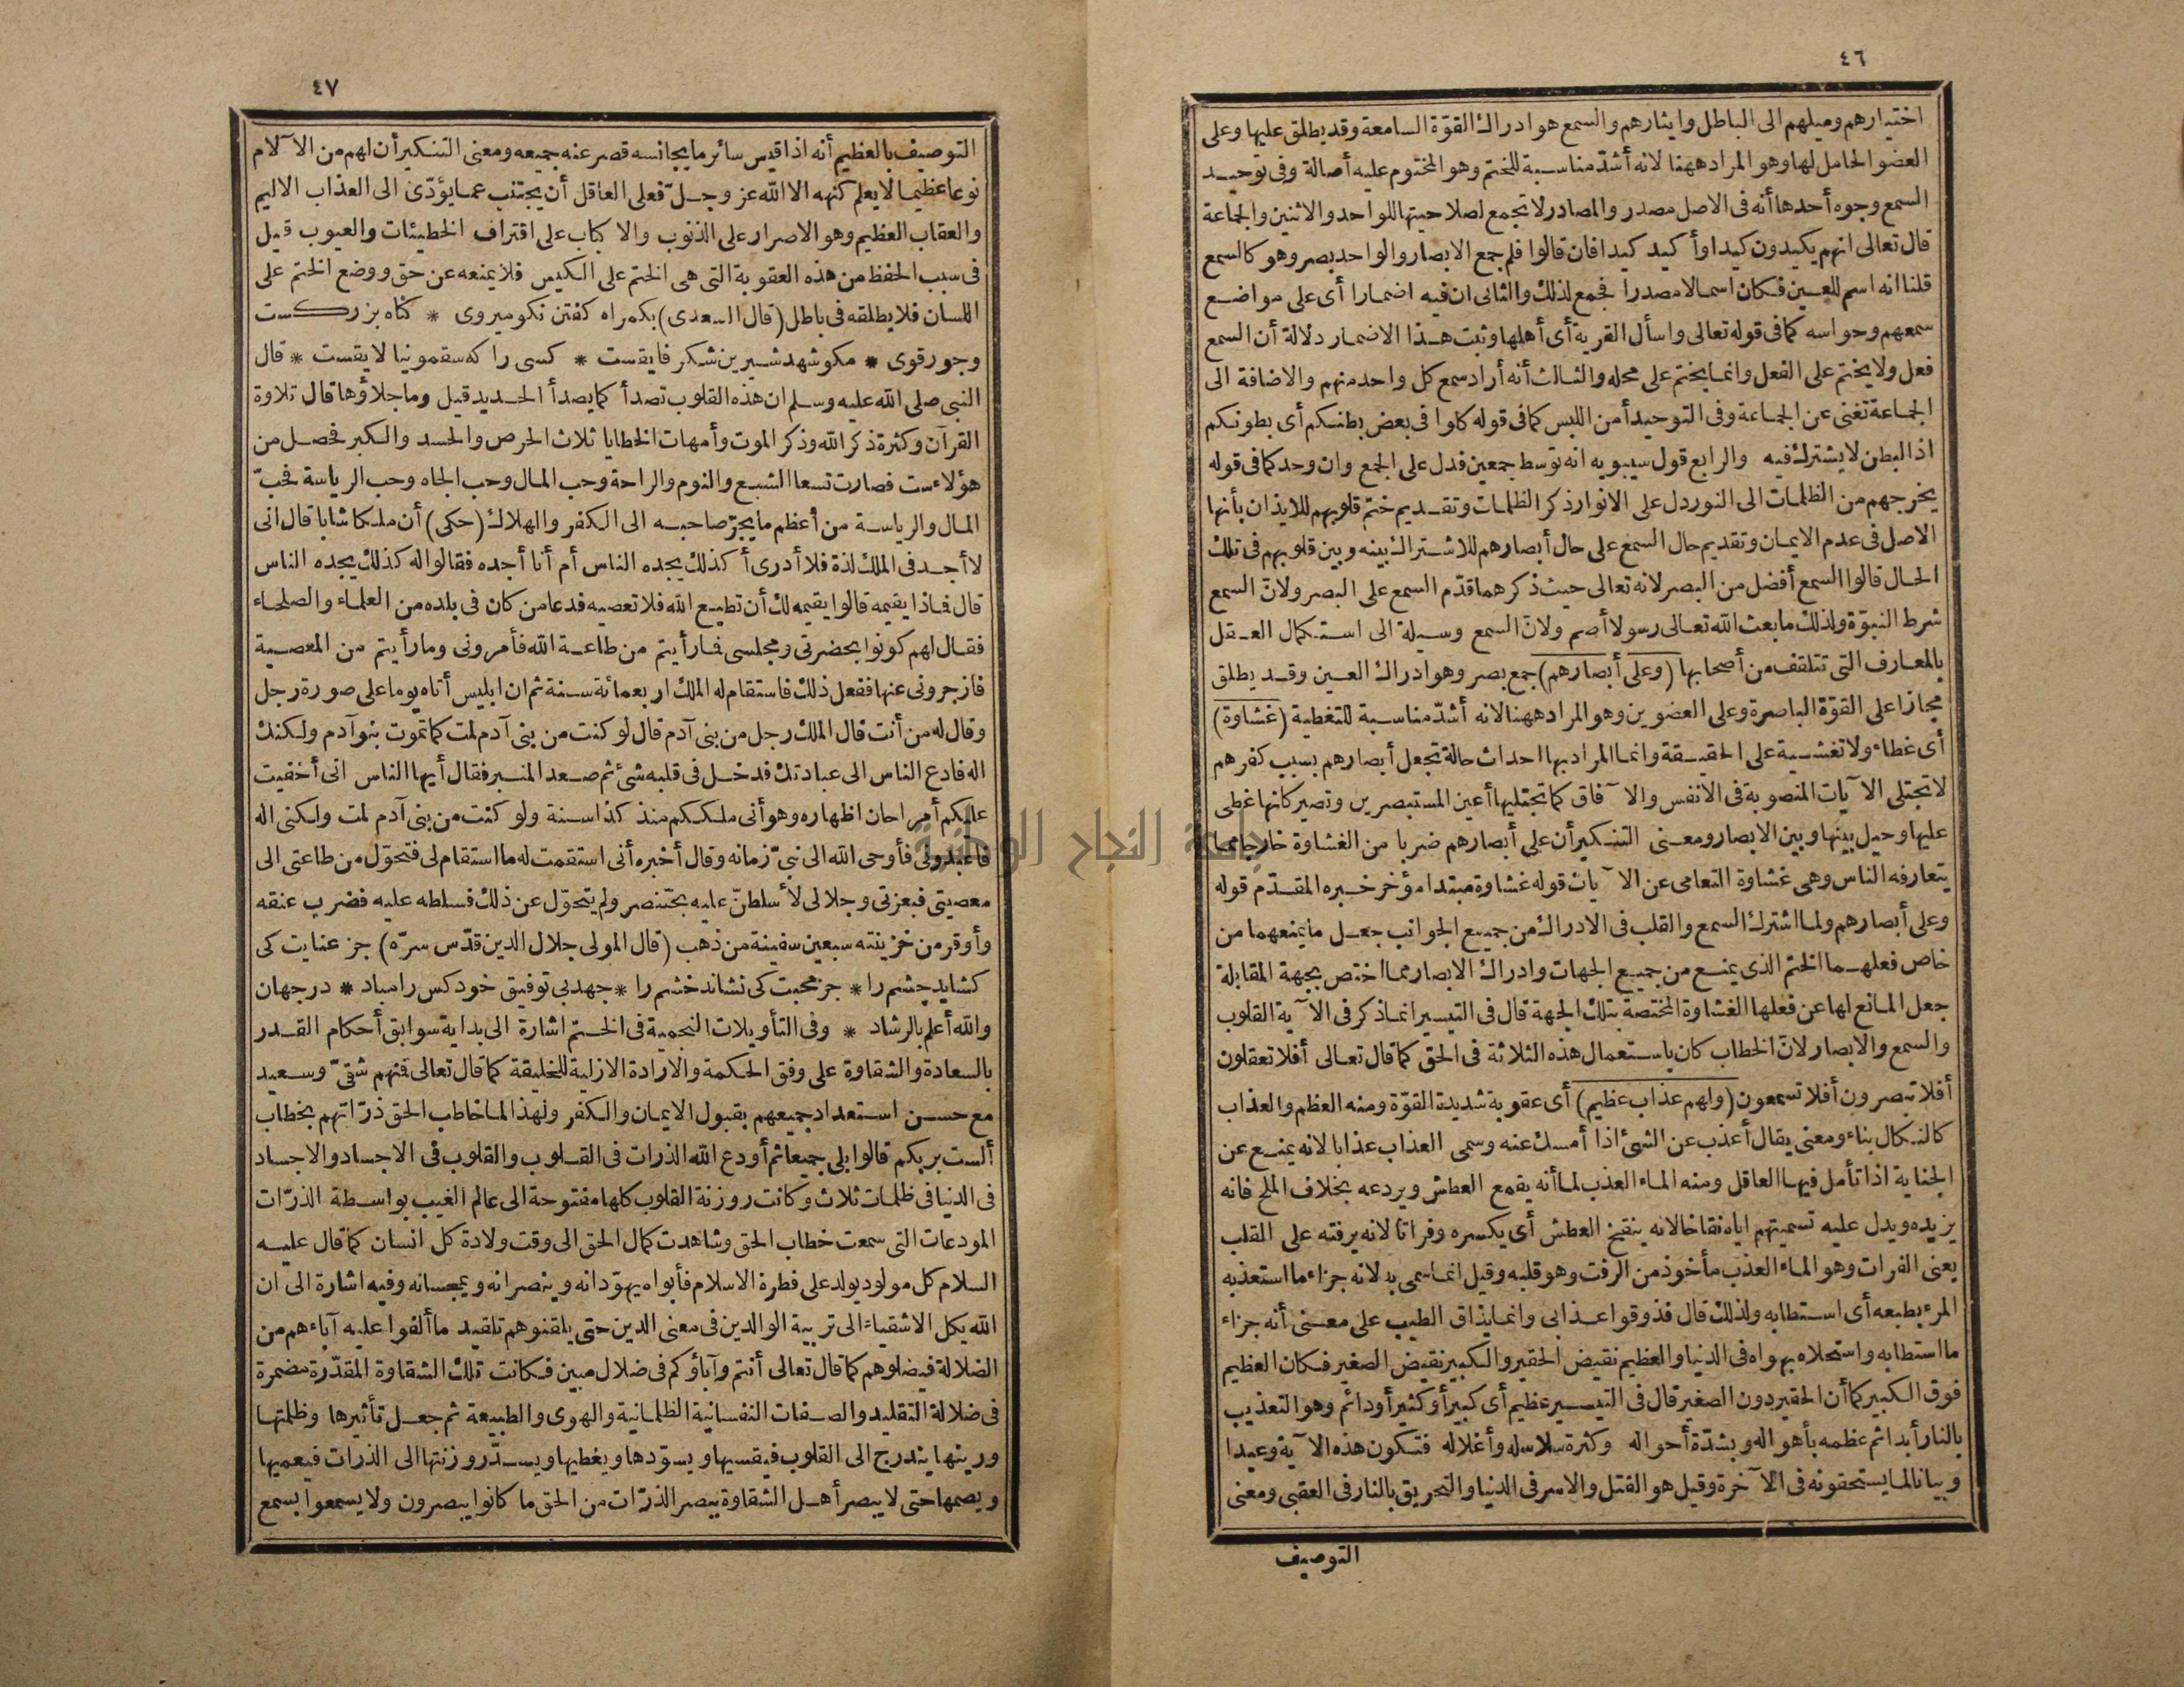 ٤٦
اختيارهم وميلهم الى الباطل وايثارهم والسمع هو ادراك القوّة السامعة وقد يطلق عليها وعلى
العضو الحامل لها وهو المراد ههنا لانه أشدّ مناسبة للختم وهو المختوم عليه أصالة وفى توحيد
السمع وجوه أحدها أنه فى الاصل مصدر والمصادر لا تجمع لصلاحيتها للواحد والاثنين والجماعة
قال تعالى انهم يكيدون كيدا وأكيد كيدا فان قالوا فلم جمع الابصار والواحد بصر وهو كالسمع
قلنا انه اسم للعين فكان اسما لا مصدرا فجمع لذلك والثانى ان فيه اضمارا أى على مواضع
سمعهم وحواسه كما فى قوله تعالى واسأل القرية أى أهلها وثبت هذا الاضمار دلالة أن السمع
فعل ولا يختم على الفعل وانما يختم على محله والثالث أنه أراد سمع كل واحد منهم والاضافة الى
الجماعة تغنى عن الجماعة وفى التوحيد أمن اللبس كما فى قوله كلوا فى بعض بطنكم أى بطونكم
اذ البطن لا يشترك فيه والرابع قول سيبويه انه توسط جمعين فدل على الجمع وان وحد كما فى قوله
يخرجهم من الظلمات الى النور دل على الانوار ذكر الظلمات وتقديم ختم قلوبهم للايذان بأنها
الاصل فى عدم الايمان وتقديم حال السمع على حال أبصارهم للاشتراك بينه وبين قلوبهم فى تلك
الحال قالوا السمع أفضل من البصر لانه تعالى حيث ذكرهما قدّم السمع على البصر ولانّ السمع
شرط النبوّة ولذلك ما بعث الله تعالى رسولا أصم ولانّ السمع وسيلة الى استكمال العقل
بالمعارف التى تتلقف من أصحابها (وعلى أبصارهم) جمع بصر وهو ادراك العين وقد يطلق
مجازا على القوّة الباصرة وعلى العضوين وهو المراد ههنا لانه أشدّ مناسبة للتغطية (غشاوة)
أى غطاء ولا تغشية على الحقيقة وانما المراد بها احداث حالة تجعل أبصارهم بسبب كفرهم
لا تجتلى الآيات المنصوبة فى الانفس والآفاق كما تجتليها أعين المستبصرين وتصير كانها غطى
عليها وحيل بينها وبين الابصار ومعنى التنكير أن على أبصارهم ضربا من الغشاوة خارجا مما
يتعارفه الناس وهى غشاوة التعامى عن الآيات قوله غشاوة مبتدا مؤخر خبره المقدّم قوله
وعلى أبصارهم ولما اشترك السمع والقلب فى الادراك من جميع الجوانب جعل ما يمنعهما من
خاص فعلهما الختم الذى يمنع من جميع الجهات وادراك الابصار مما اختص بجهة المقابلة
جعل المانع لها عن فعلها الغشاوة المختصة بتلك الجهة قال فى التيسير انما ذكر فى الآية القلوب
والسمع والابصار لانّ الخطاب كان باستعمال هذه الثلاثة فى الحق كما قال تعالى أفلا تعقلون
أفلا تبصرون أفلا تسمعون (ولهم عذاب عظيم) أى عقوبة شديدة القوّة ومنه العظم والعذاب
كالنكال بناء ومعنى يقال أعذب عن الشئ اذا أمسك عنه وسمى العذاب عذابا لانه يمنع عن
الجناية اذا تأمل فيها العاقل ومنه الماء العذب لما أنه يقمع العطش ويردعه بخلاف الملح فانه
يزيده ويدل عليه تسميتهم اياه نقاخا لانه ينقخ العطش أى يكسره وفراتا لانه يرفته على القلب
يعنى الفرات وهو الماء العذب مأخوذ من الرفت وهو قلبه وقيل انما سمى به لانه جزاء ما استعذبه
المرء بطبعه أى استطابه ولذلك قال فذوقوا عذابى وانما يذاق الطيب على معنى أنه جزاء
ما استطابه واستحلاه بهواه فى الدنيا والعظيم نقيض الحقير والكبير نقيض الصغير فكان العظيم
فوق الكبير كما أن الحقير دون الصغير قال فى التيسير عظيم أى كبير أو كثير أو دائم وهو التعذيب
بالنار أبدا ثم عظمه بأهواله وبشدّة أحواله وكثرة سلاسله وأغلاله فتكون هذه الآية وعيدا
وبيانا لما يستحقونه فى الآخرة وقيل هو القتل والاسر فى الدنيا والتحريق بالنار فى العقبى ومعنى
التوصيف
٤٧
التوصيف بالعظيم أنه اذا قيس سائر ما يجانسه قصر عنه جميعه ومعنى التنكير أن لهم من الآلام
نوعا عظيما لا يعلم كنهه الا الله عز وجلّ فعلى العاقل أن يجتنب عما يؤدّى الى العذاب الاليم
والعقاب العظيم وهو الاصرار على الذنوب والاكباب على اقتراف الخطيئات والعيوب قيل
فى سبب الحفظ من هذه العقوبة التى هى الختم على الكيس فلا يمنعه عن حق ووضع الختم على
اللسان فلا يطلقه فى باطل (قال السعدى) بكمراه كفتن نكو ميروى * كناه بزركست
وجور قوى * مكو شهد شيرين شكر فايقست * كسى را كه سقمونيا لايقست * قال
النبى صلى الله عليه وسلم ان هذه القلوب تصدأ كما يصدأ الحديد قيل وما جلاؤها قال تلاوة
القرآن وكثرة ذكر الله وذكر الموت وأمهات الخطايا ثلاث الحرص والحسد والكبر فحصل من
هؤلاء ست فصارت تسعا الشبع والنوم والراحة وحب المال وحب الجاه وحب الرياسة فحبّ
المال والرياسة من أعظم ما يجرّ صاحبه الى الكفر والهلاك (حكى) أن ملكا شابا قال انى
لا أجد فى الملك لذة فلا أدرى أكذلك يجده الناس أم أنا أجده فقالوا له كذلك يجده الناس
قال فماذا يقيمه قالوا يقيمه لك أن تطيع الله فلا تعصيه فدعا من كان فى بلده من العلماء والصلحاء
فقال لهم كونوا بحضرتى ومجلسى فما رأيتم من طاعة الله فأمرونى وما رأيتم من المعصية
فازجرونى عنها ففعل ذلك فاستقام له الملك اربعمائة سنة ثم ان ابليس أتاه يوما على صورة رجل
وقال له من أنت قال الملك رجل من بنى آدم قال لو كنت من بنى آدم لمت كما تموت بنو آدم ولكنك
اله فادع الناس الى عبادتك فدخل فى قلبه شئ ثم صعد المنبر فقال أيها الناس انى أخفيت
عليكم أمرا حان اظهاره وهو أنى ملككم منذ كذا سنة ولو كنت من بنى آدم لمت ولكنى اله
فاعبدونى فأوحى الله الى نبىّ زمانه وقال أخبره أنى استقمت له ما استقام لى فتحوّل من طاعتى الى
معصيتى فبعزتى وجلالى لأسلطنّ عليه بختنصر ولم يتحوّل عن ذلك فسلطه عليه فضرب عنقه
وأوقر من خزينته سبعين سفينة من ذهب (قال المولى جلال الدين قدّس سرّه) جز عنايت كى
كشايد چشم را * جز محبت كى نشاند خشم را * جهد بى توفيق خود كس را مباد * در جهان
والله أعلم بالرشاد * وفى التأويلات النجمية فى الختم اشارة الى بداية سوابق أحكام القدر
بالسعادة والشقاوة على وفق الحكمة والارادة الازلية للخليقة كما قال تعالى فمنهم شقىّ وسعيد
مع حسن استعداد جميعهم بقبول الايمان والكفر ولهذا لما خاطب الحق ذرّاتهم بخطاب
ألست بربكم قالوا بلى جميعا ثم أودع الله الذرات فى القلوب والقلوب فى الاجساد والاجساد
فى الدنيا فى ظلمات ثلاث وكانت روزنة القلوب كلها مفتوحة الى عالم الغيب بواسطة الذرّات
المودعات التى سمعت خطاب الحق وشاهدت كمال الحق الى وقت ولادة كل انسان كما قال عليه
السلام كل مولود يولد على فطرة الاسلام فأبواه يهوّدانه وينصرانه ويمجسانه وفيه اشارة الى ان
الله يكل الاشقياء الى تربية الوالدين فى معنى الدين حتى يلقنوهم تلقيد ما ألفوا عليه آباءهم من
الضلالة فيضلوهم كما قال تعالى أنتم وآباؤكم فى ضلال مبين فكانت تلك الشقاوة المقدّرة مضمرة
فى ضلالة التقليد والصفات النفسانية الظلمانية والهوى والطبيعة ثم جعل تأثيرها وظلمتها
ورينها يندرج الى القلوب فيقسيها ويسوّدها ويغطيها ويسدّ روزنتها الى الذرات فيعميها
ويصمها حتى لا يبصر أهل الشقاوة ببصر الذرّات من الحق ما كانوا يبصرون ولا يسمعوا بسمع
جامعة النجاح الوطنية